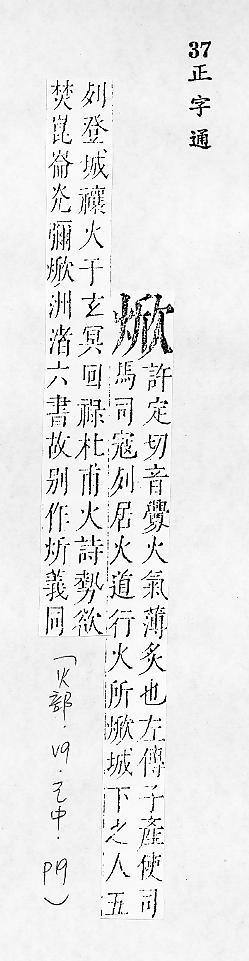 37正字通
焮
許定切音釁火氣薄炙也左傳子產使司
馬司寇列居火道行火所焮城下之人五
列登城禳火于玄冥回祿杜甫火詩勢欲
焚崑崙光彌焮洲渚六書故别作炘義同
(火部.